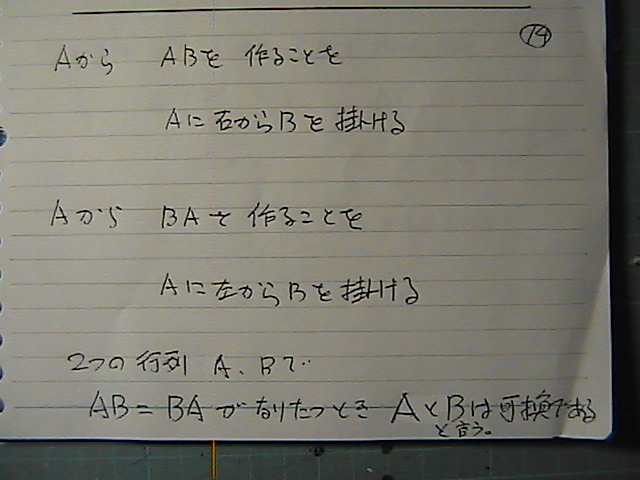 ⑭
Aから ABを 作ることを
Aに右からBを掛ける
Aから BAを作ることを
Aに左からBを掛ける
2つの行列 A、Bで
AB=BAがなりたつとき AとBは可換である
と言う。